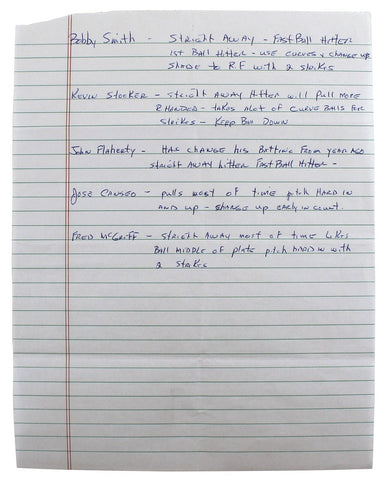 Bobby Smith - Straight Away - Fast Ball Hitter
1st Ball Hitter - use curves & change up
shade to RF with 2 strikes
Kevin Stocker - straight Away Hitter will pull more
R Handed - takes alot of curve Balls for
strikes - Keep Ball Down
John Flaherty - Has change his Batting From year ago
straight Away hitter Fast Ball Hitter -
Jose Canseco - pulls most of time pitch Hard in
and up - change up early in count.
Fred McGriff - straight Away most of time likes
Ball middle of plate pitch Hard in with
2 strikes